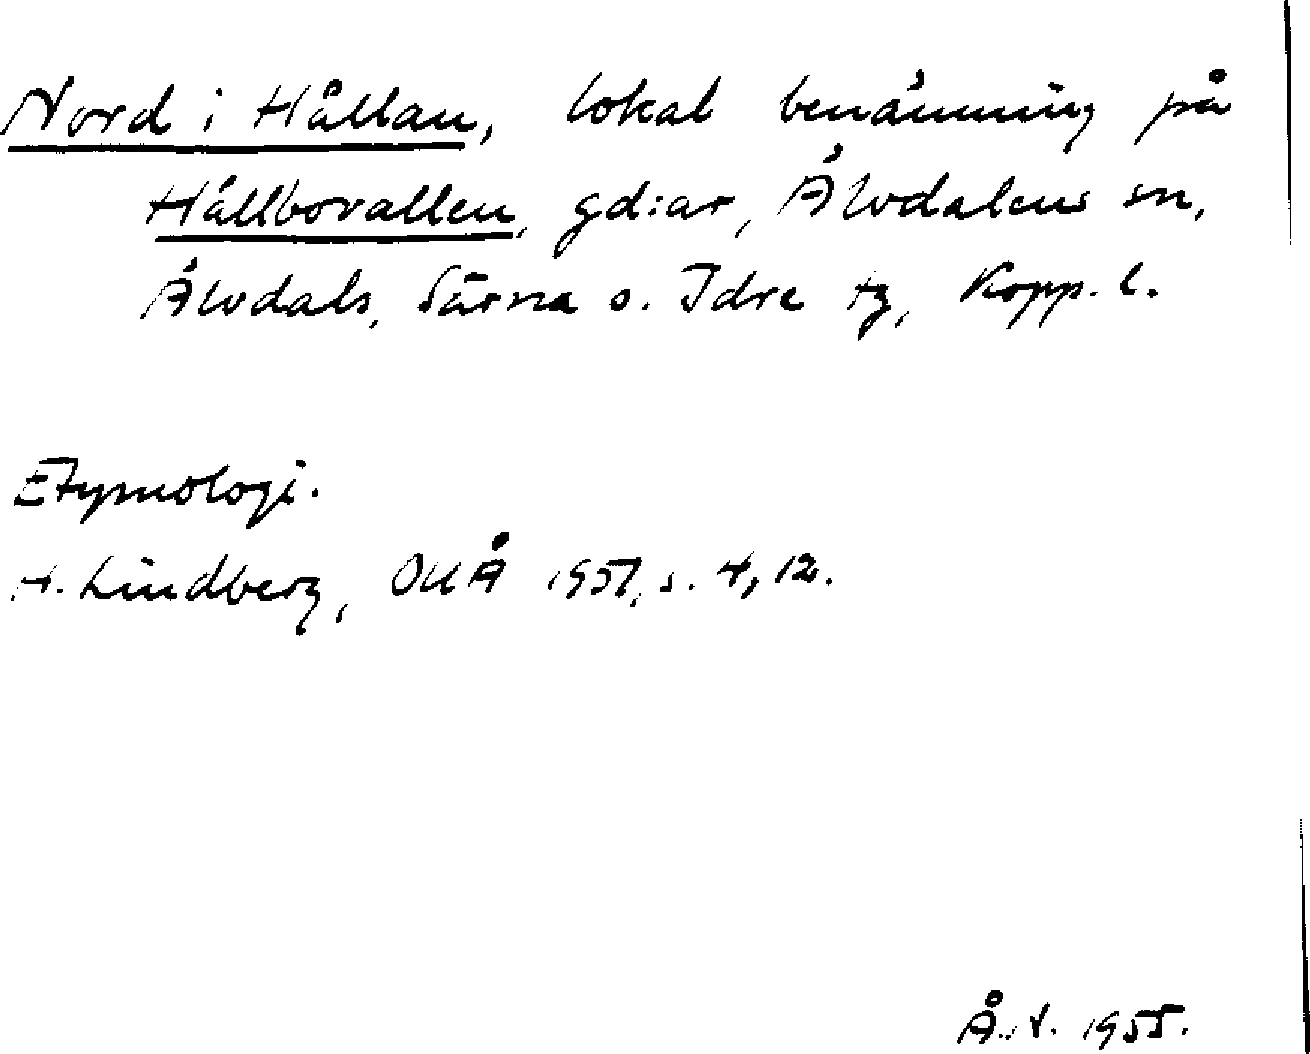 Nord i Hållan, lokal benämning på
Hållbovallen, gd:ar, Älvdalens sn,
Älvdals, Särna o. Idre tg, Kopp. l.
Etymologi.
H. Lindberg, OUÅ 1951, s. 4, 12.
Å. V. 1955.